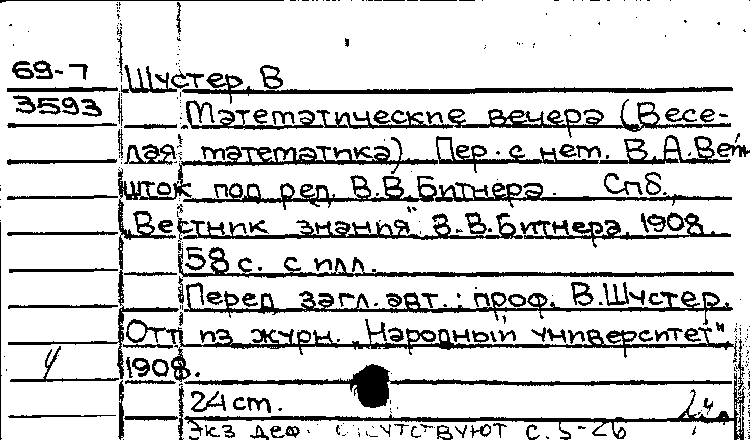 69-7 Шустер, В
3593 Математические вечера (Весе-
лая математика). Пер. с нем. В.А.Вейн-
шток под ред. В.В.Битнера. Спб.,
"Вестник знания" В.В.Битнера, 1908.
58 с. с илл.
Перед загл. авт.: проф. В.Шустер.
Отт из журн. "Народный университет",
4 1908.
24 ст.
Экз деф. отсутствуют с. 5-26